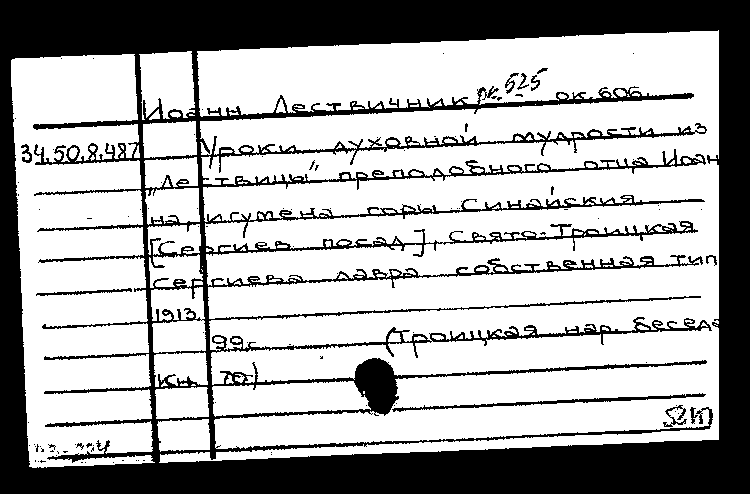 Иоанн Лествичник ок. 525 ок. 606.
34.50.8.487 Уроки духовной мудрости из
„Лествицы“ преподобного отца Иоан
на, игумена горы Синайския.
[Сергиев посад], Свято-Троицкая
Сергиева лавра собственная тип
1913.
99с. (Троицкая нар. беседа
Кн. 70)